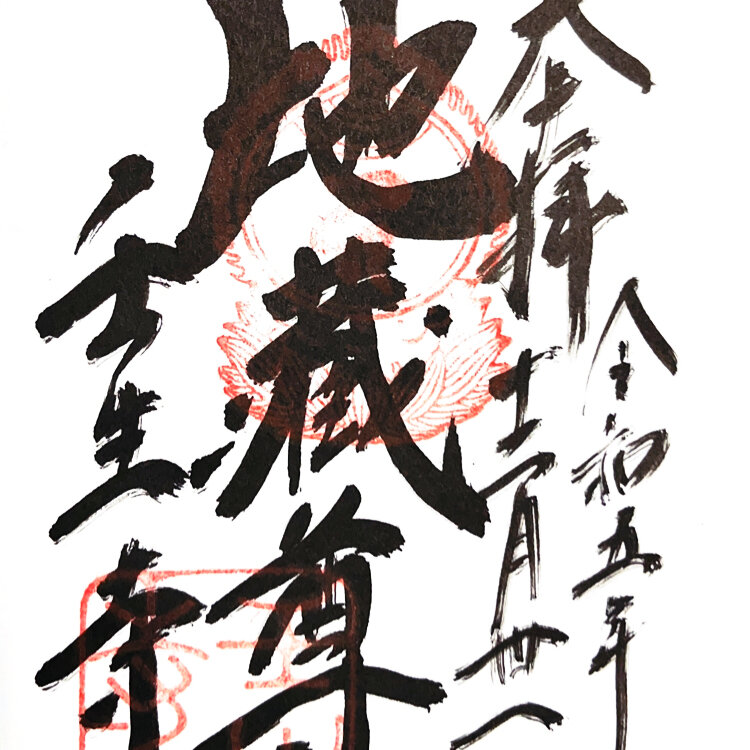 奉拝
令和五年
十二月卅一
地藏尊
壬生寺